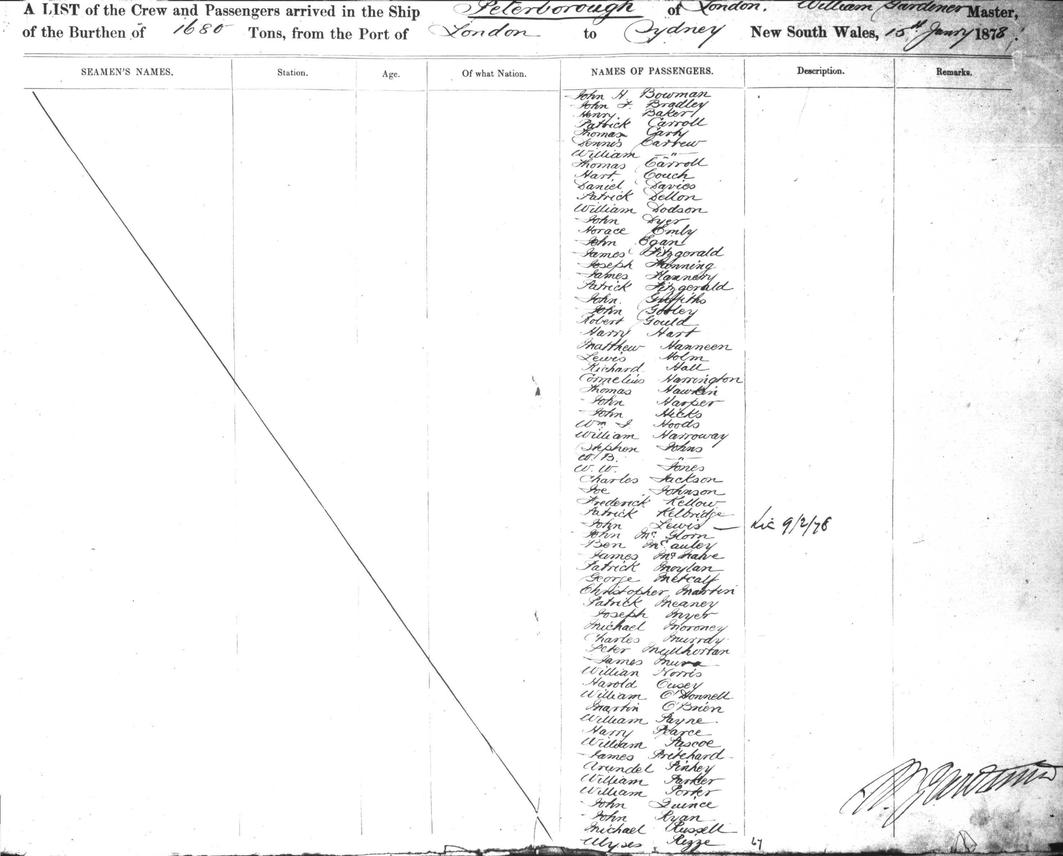 A LIST of the Crew and Passengers arrived in the Ship Peterborough of London. William Gardener Master,
of the Burthen of 1680 Tons, from the Port of London to Sydney New South Wales, 15th Janry 1878
SEAMEN'S NAMES. Station. Age. Of what Nation. NAMES OF PASSENGERS. Description. Remarks.
John H. Bowman
John F. Bradley
Henry Baker
Patrick Carroll
Thomas Carty
Dennis Carbew
William — " —
Thomas Carroll
Hart Couch
Daniel Davies
Patrick Dellon
William Dodson
John Dyer
Horace Emly
John Egan
James Fitzgerald
Joseph Fanning
James Flannery
Patrick Fitzgerald
John Griffiths
John Gooley
Robert Gould
Harry Hart
Matthew Hanneen
Lewis Holm
Richard Hall
Cornelius Harrington
Thomas Hawkin
John Harper
John Hicks
Wm J. Hoods
William Harroway
Stephen Johns
W. B. — " —
W. W. Jones
Charles Jackson
Joe Johnson
Frederick Kellow
Patrick Kilbridge
John Lewis — 9/2/78
John Mc Glorn
Ben McCauley
James
Patrick Moylan
George Metcalf
Christopher Martin
Patrick Meaney
Joseph Myer
Michael Moroney
Charles Murray
Peter
James
William Norris
Harold Cusey
William O'Donnell
Martin O'Brien
William Payne.
Harry Pearce
William Pascoe
James Pritchard
Arundel Pinkey
William Parker
William Porter
John Quince
John Ryan
Michael Russell
Ulyses Rezze